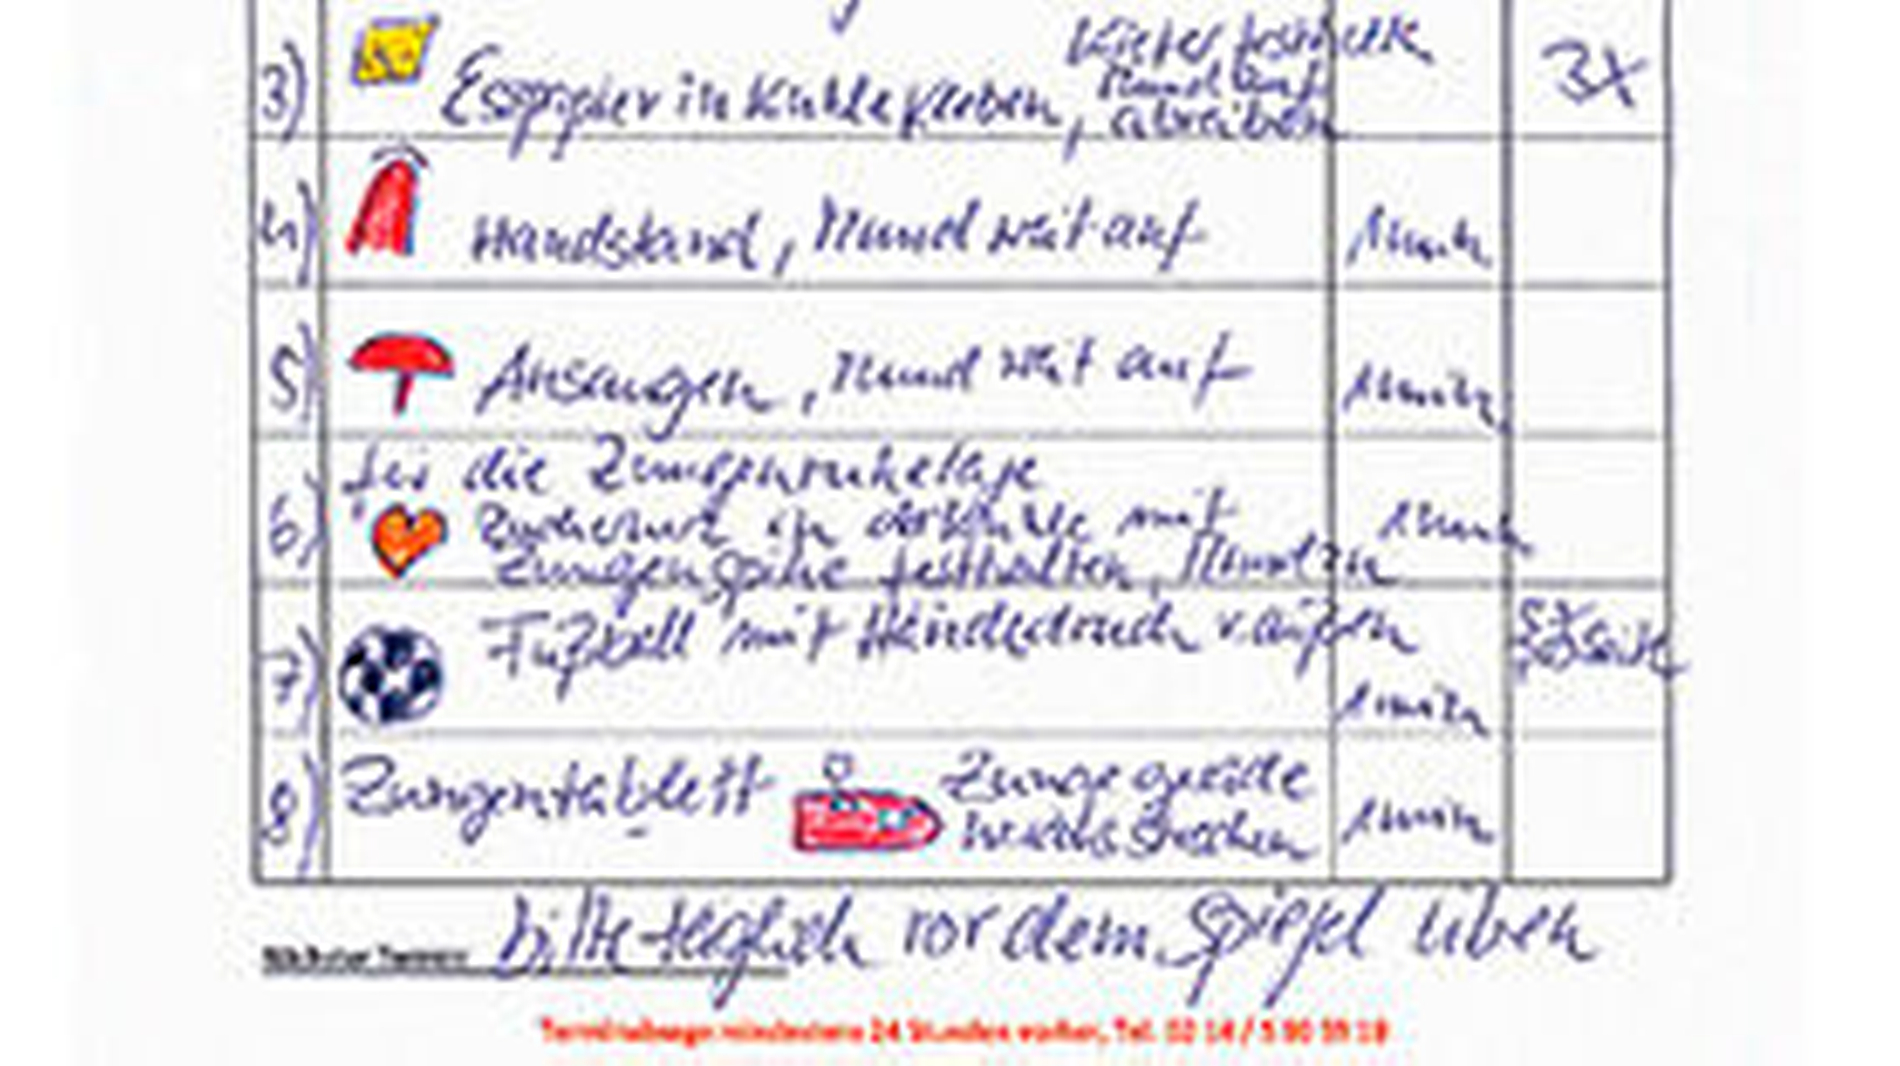 Kiefer festhalten
Mund auf
3) Esspapier in Kuhle kleben, abreiben 3X
4) Handstand, Mund weit auf 1 min
5) Ansaugen, Mund weit auf 1 min
für die Zungenruhelage
6) in der Kuhle mit 1 min
Zungenspitze festhalten, Mund zu
7) Fußball mit Händedruck v. außen
1 min
8) Zungentablett Zunge gerade 1 min
bitte täglich vor dem Spiegel üben
Nächster Termin:
Terminabsage mindestens 24 Stunden vorher, Tel. 02 14 /